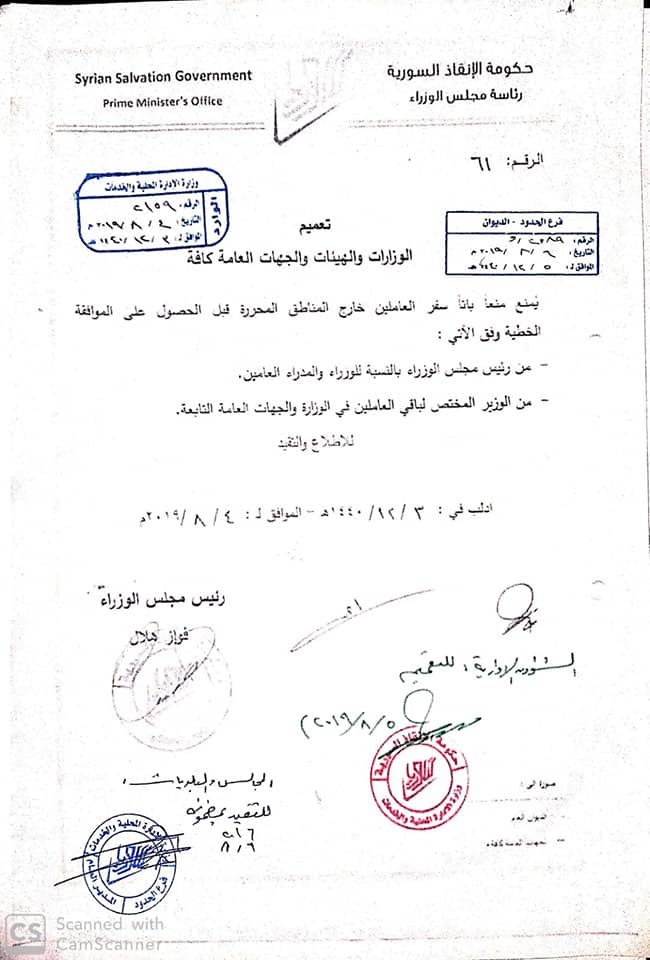 Syrian Salvation Government
Prime Minister's Office
حكومة الإنقاذ السورية
رئاسة مجلس الوزراء
الرقم: ٦١
وزارة الادارة المحلية والخدمات
الوارد
الرقم: ٢١٥٩
التاريخ: ٤ / ٨ / ٢٠١٩م
الموافق لـ: ٣ / ١٢ / ١٤٤٠هـ
فرع الحدود - الديوان
الرقم:
التاريخ: ٦ / ٨ / ٢٠١٩م
الموافق لـ: ٥ / ١٢ / ١٤٤٠هـ
تعميم
الوزارات والهيئات والجهات العامة كافة
يُمنع منعاً باتاً سفر العاملين خارج المناطق المحررة قبل الحصول على الموافقة
الخطية وفق الآتي :
- من رئيس مجلس الوزراء بالنسبة للوزراء والمدراء العامين.
- من الوزير المختص لباقي العاملين في الوزارة والجهات العامة التابعة.
للاطلاع والتقيد
ادلب في : ٣ / ١٢ / ١٤٤٠هـ - الموافق لـ : ٤ / ٨ / ٢٠١٩م
رئيس مجلس الوزراء
فواز هلال
الشؤون الإدارية: للتعميم
٢٠١٩/٨/٥
حكومة الإنقاذ السورية
وزارة الإدارة المحلية والخدمات
المجالس والبلديات:
للتقيد بمضمونه
٨/٦
فرع الحدود
صورة الى:
الديوان العام
الجهات العامة كافة
CS
Scanned with
CamScanner